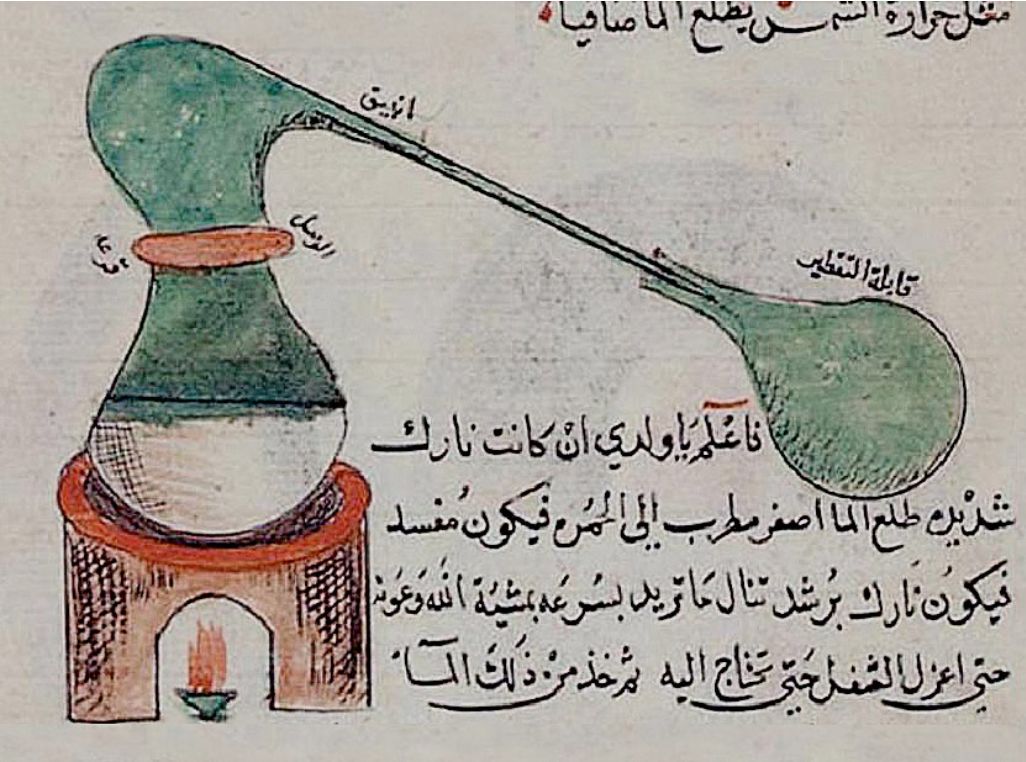 مثل حرارة الشمس يطلع الما صافيا
انبيق
الوصل
قرعة
قابلة التقطير
فاعْلم يَا ولدي انْ كانت نارك
شدْيده طلع الما اصفر مطرب إلي الحُمره فيكون مُفسد
فيكون نارك برُشد تنال مَا تريد بسُرعَه بمشيّة الله وَعَونه
حتي اعزل الثفل حَتي تحتاج اليه ثم خذ منْ ذَلكَ المآء